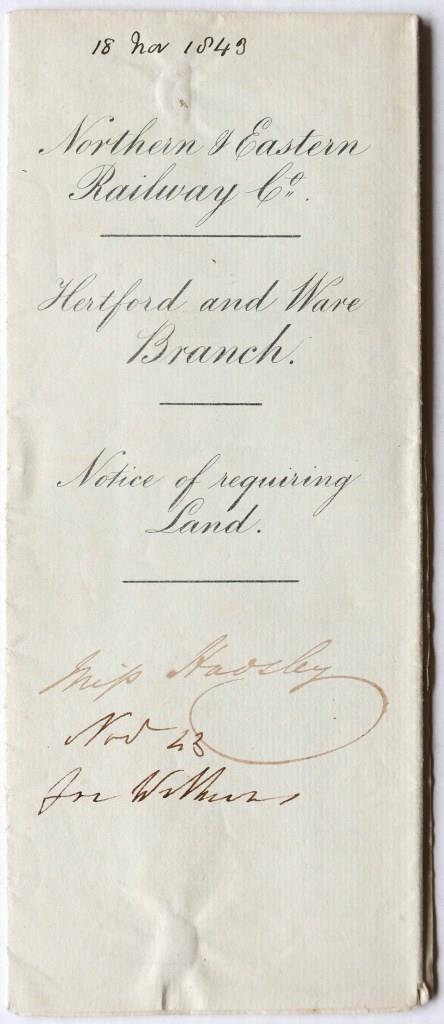 18 Nov 1843
Northern & Eastern
Railway Co.
Hertford and Ware
Branch.
Notice of requiring
Land.
Miss Hadsley
Nov 23